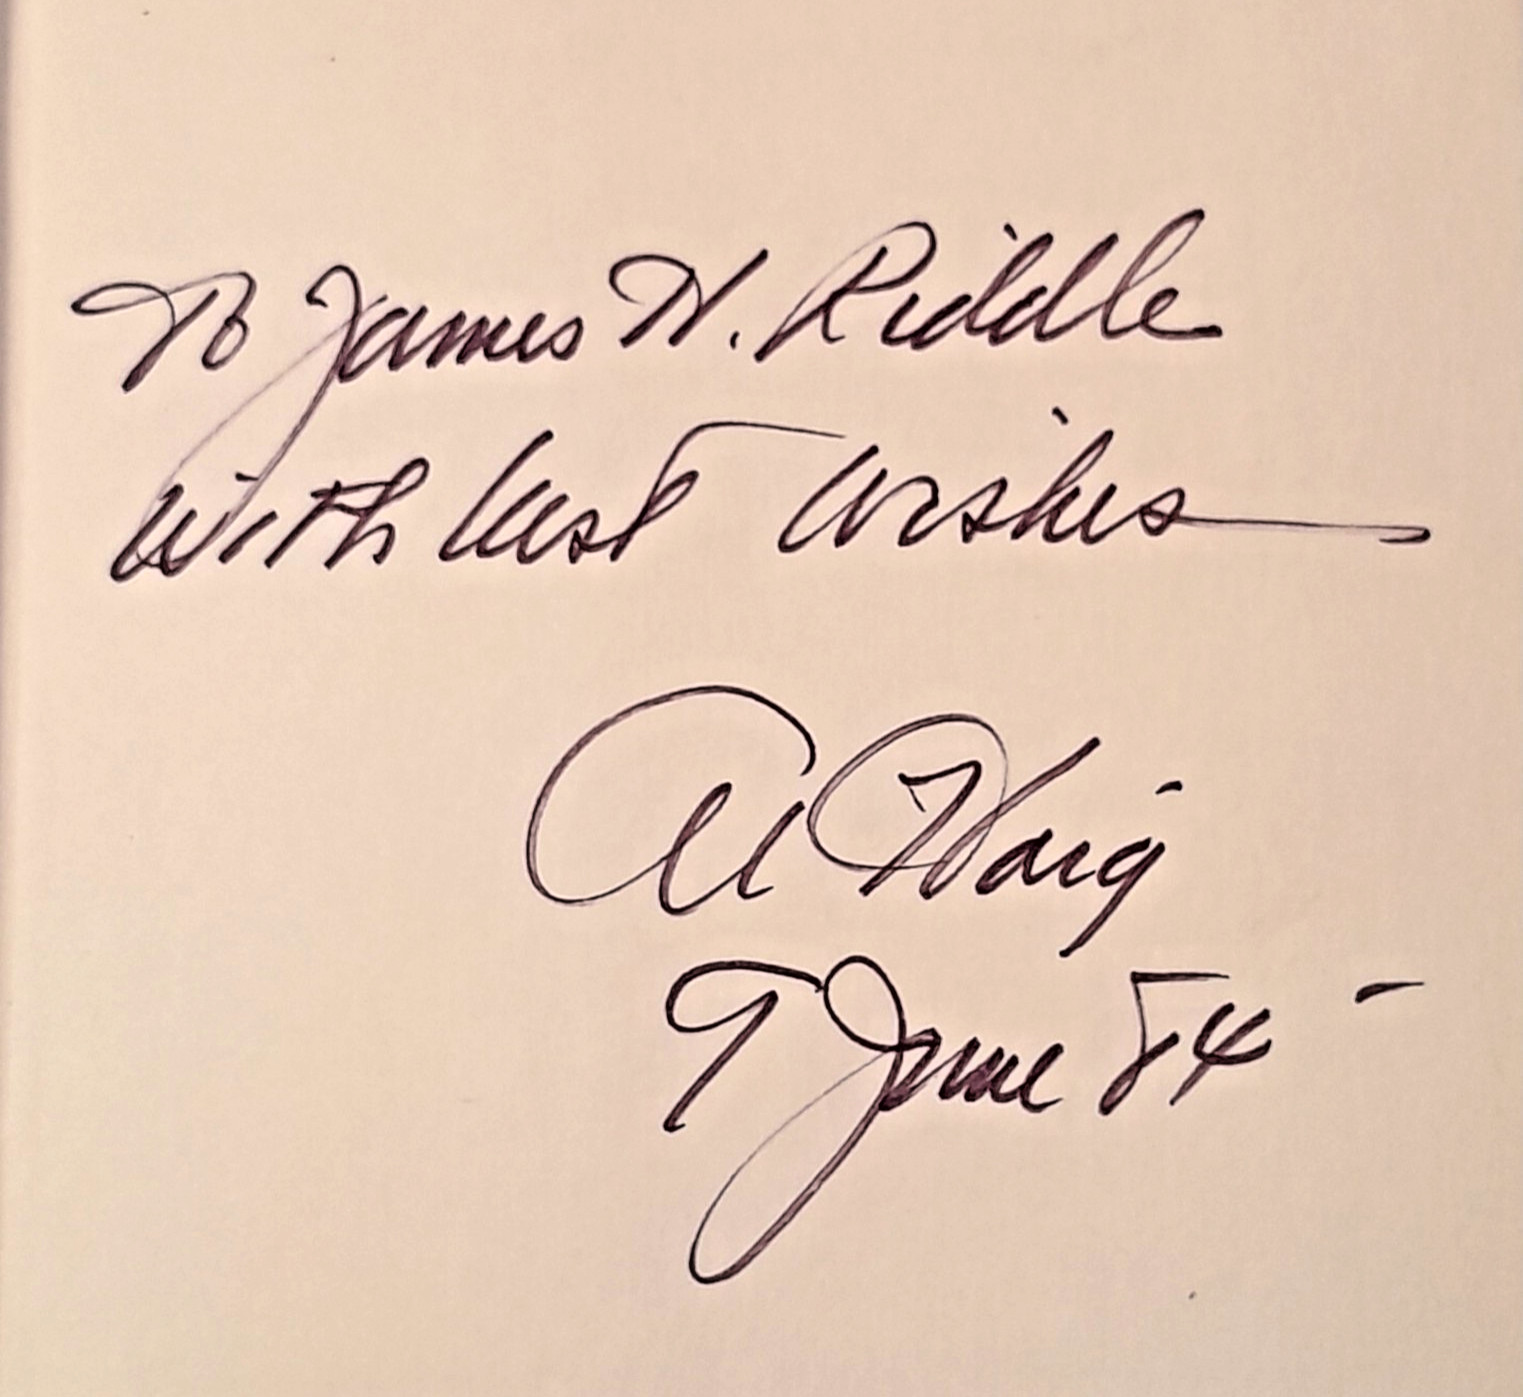 To James H. Riddle
With best wishes
Al Haig
7 June 84